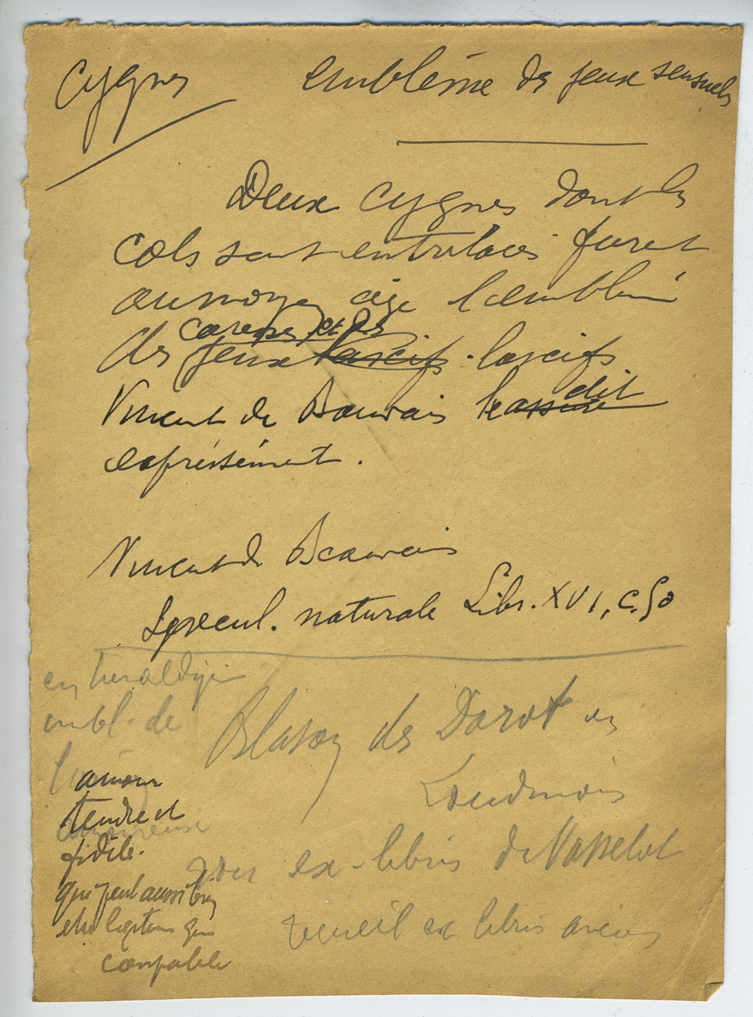 Cygnes emblème de jeux sensuels
Deux cygnes dont les
cols sont entrelacés furent
au moyen age l'emblème
caresses et des
des jeux lascifs. lascifs
dit
Vincent de Bauvais le
expressément.
Vincent de Beauvais
Specul. naturale Libr. XVI, c. 50
en héraldique
embl. de
Blason des Darot en
Loudunois
amour
tendre et
amoureuse
fidèle.
ex-libris de Vasselot
que peut aussi bien
recueil ex libris anciens
être légitime que
coupable